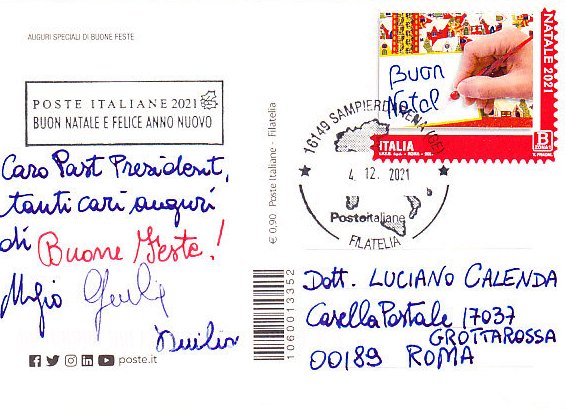 AUGURI SPECIALI DI BUONE FESTE
POSTE ITALIANE 2021
BUON NATALE E FELICE ANNO NUOVO
Caro Past President,
tanti cari auguri
di Buone Feste!
poste.it
€ 0,90 Poste Italiane - Filatelia
1060013352
Buon
Natal
NATALE 2021
ITALIA
B
ZONA 1
16149 SAMPIERDARENA (GE)
4. 12. 2021
Posteitaliane
FILATELIA
Dott. LUCIANO CALENDA
Casella Postale 17037
GROTTAROSSA
00189 ROMA